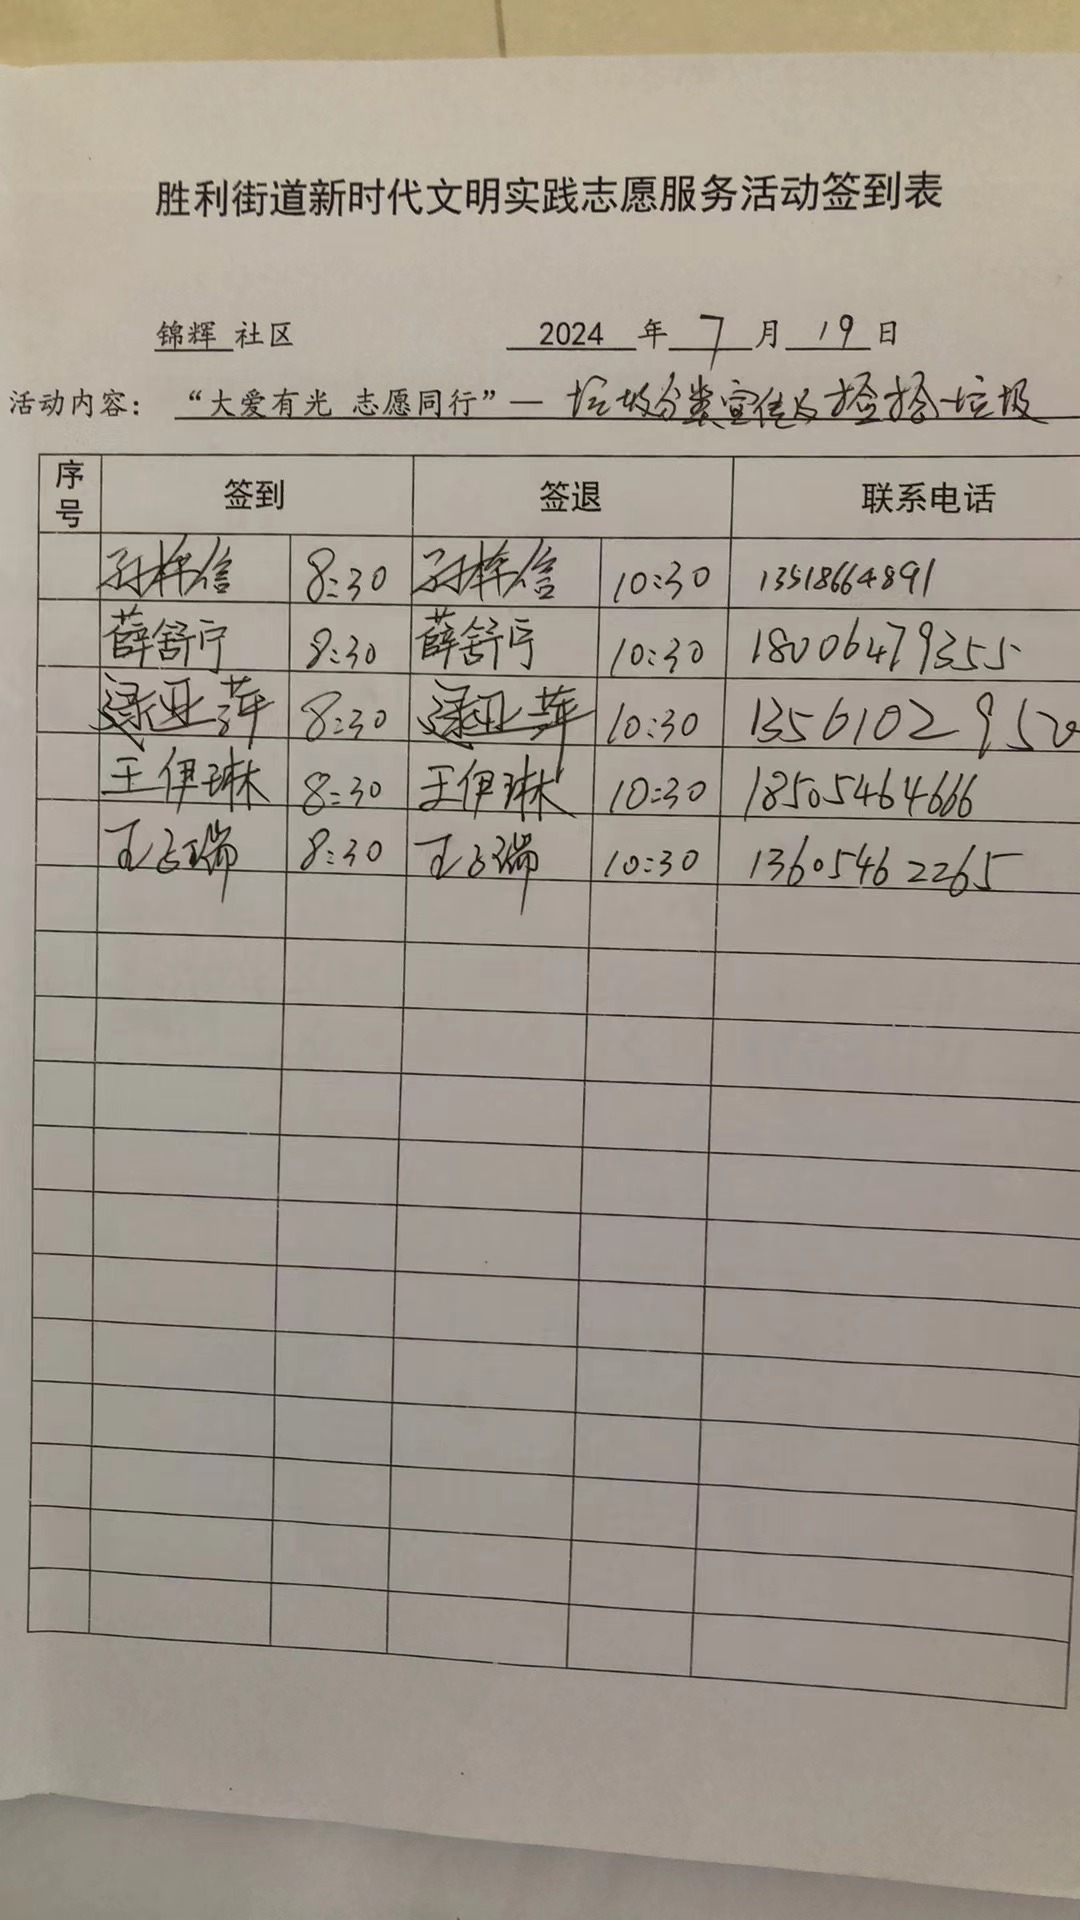 胜利街道新时代文明实践志愿服务活动签到表
锦辉 社区 2024 年 7 月 19 日
活动内容： “大爱有光 志愿同行”— 垃圾分类宣传及捡拾垃圾
序号 签到 签退 联系电话
孙梓信 8:30 孙梓信 10:30 13518664891
薛舒宁 8:30 薛舒宁 10:30 18006479355
逯亚萍 8:30 逯亚萍 10:30 1356102950
王伊琳 8:30 王伊琳 10:30 18505464666
王 瑞 8:30 王 瑞 10:30 13605462265